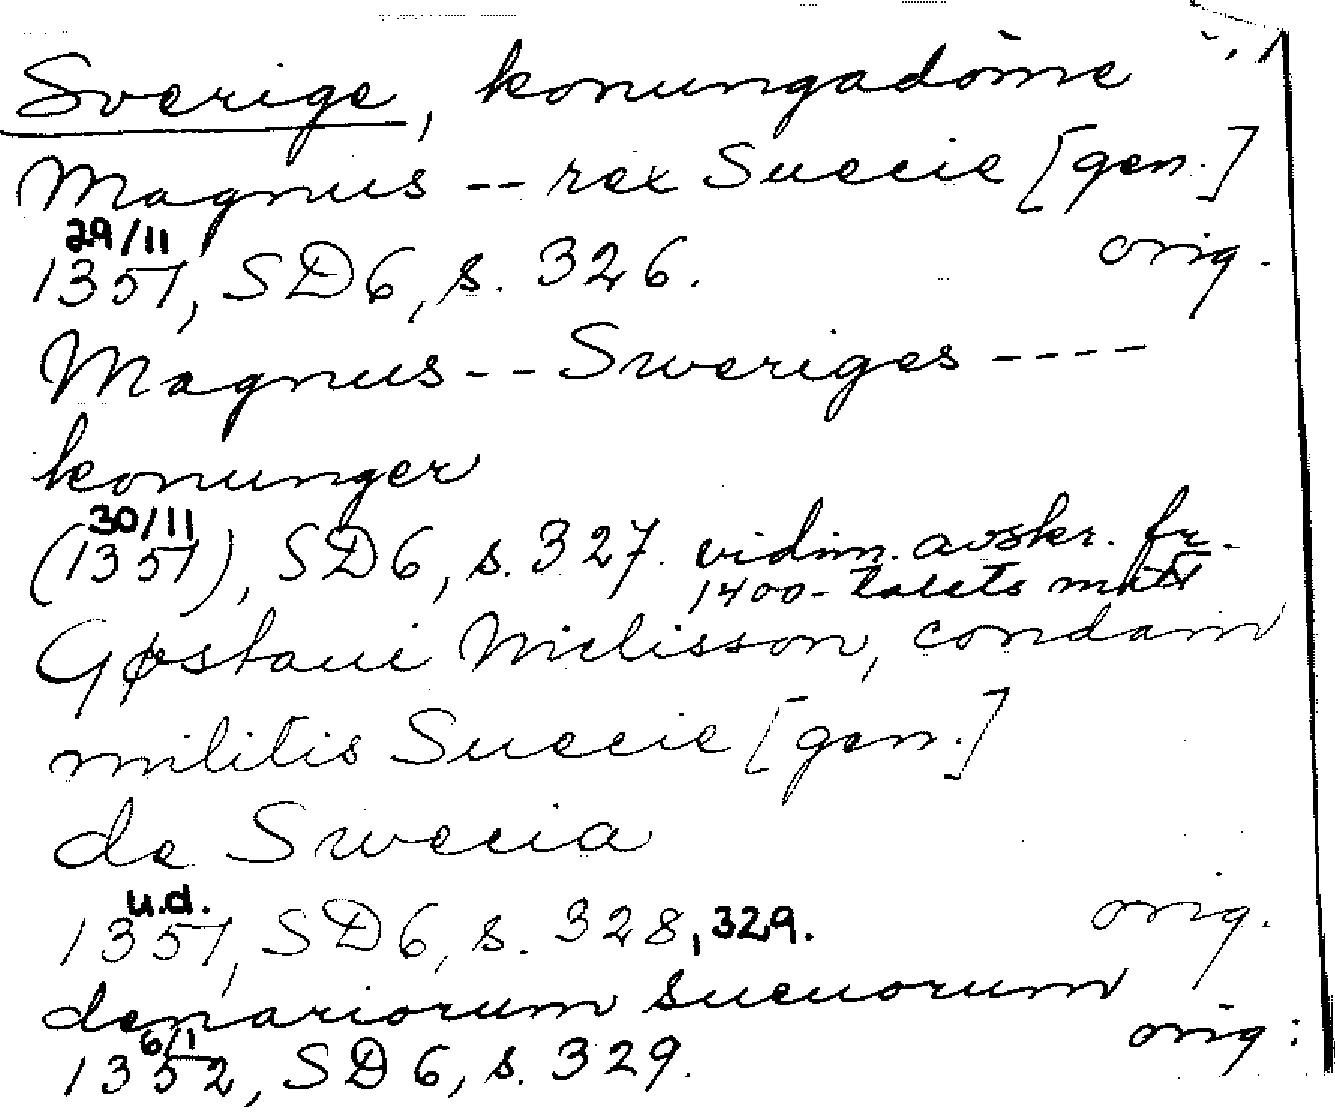 Sverige, konungadöme
Magnus -- rex Suecie [gen.]
29/11
1351, SD 6, s. 326. orig.
Magnus -- Sweriges ----
konunger
30/11
(1351), SD 6, s. 327. vidim. avskr. fr.
1400-talets mitt
Gøstaui Niclisson, condam
militis Suecie [gen.]
de Swecia
u.d.
1351, SD 6, s. 328, 329. orig.
denariorum sueuorum
6/1
1352, SD 6, s. 329. orig.